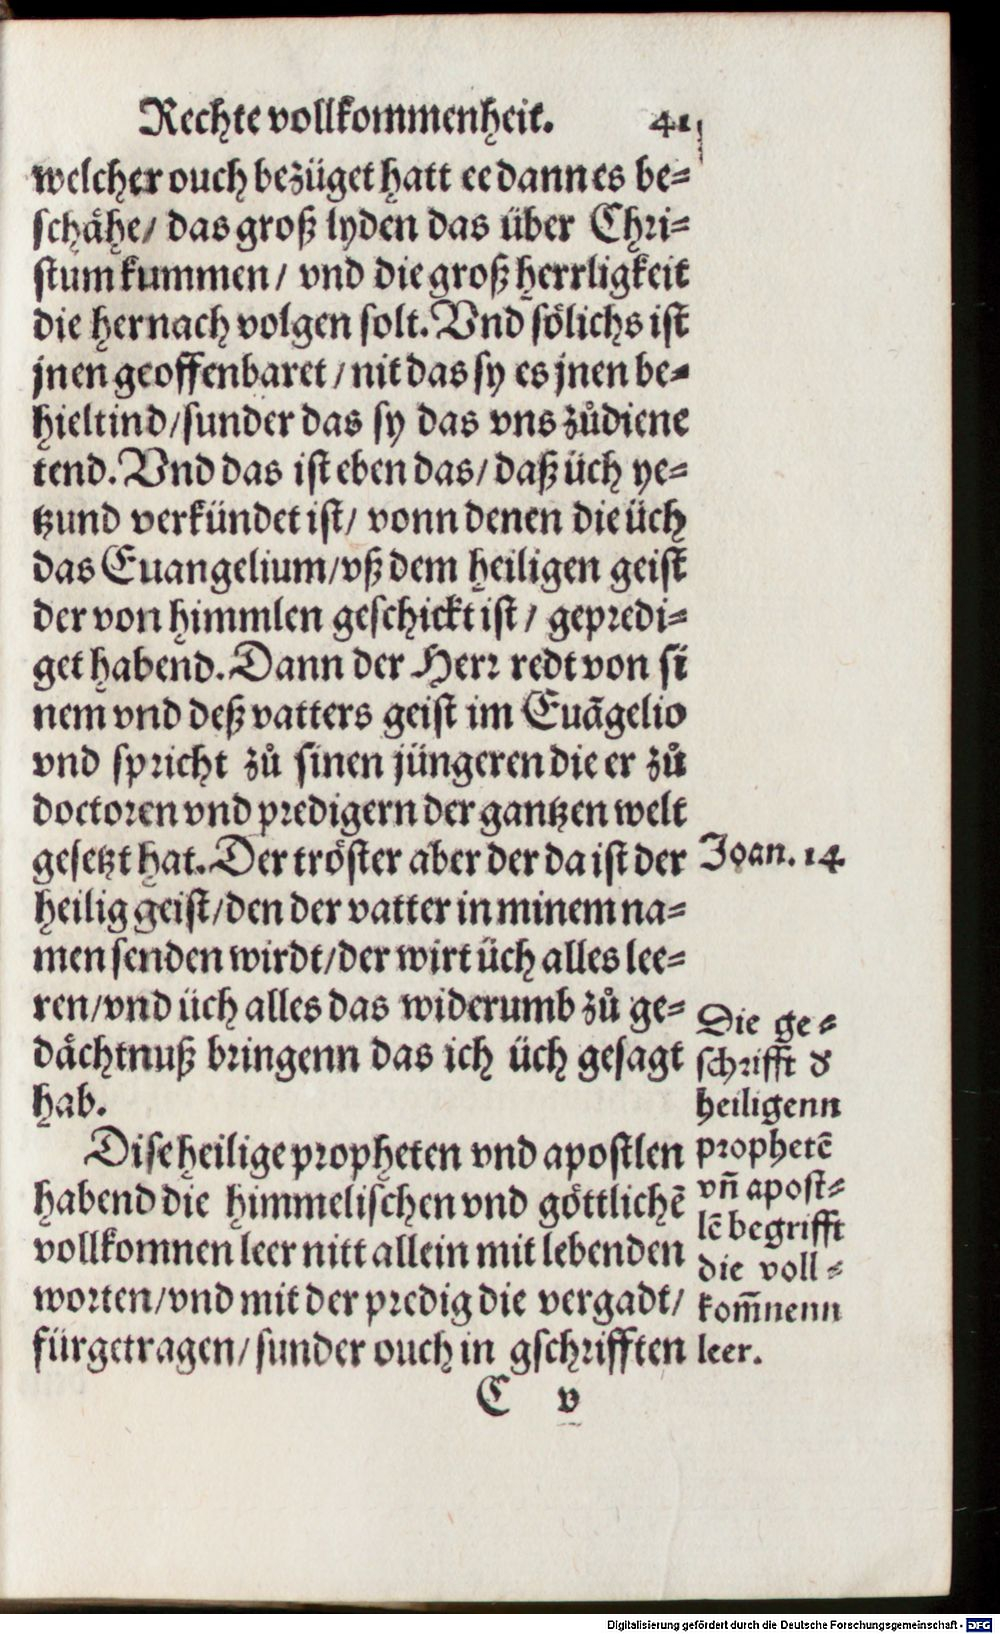 Rechte vollkommenheit. 41
welcher ouch bezüget hatt ee dann es be-
schähe/ das groß lyden das über Chri-
stum kummen/ vnd die groß herrligkeit
die hernach volgen solt. Vnd sölichs ist
jnen geoffenbaret/ nit das sy es jnen be-
hieltind/ sunder das sy das vns zůdiene
tend. Vnd das ist eben das/ daß üch ye-
tzund verkündet ist/ vonn denen die üch
das Euangelium/ vß dem heiligen geist
der von himmlen geschickt ist/ gepredi-
get habend. Dann der Herr redt von si
nem vnd deß vatters geist im Euāgelio
vnd spricht zů sinen jüngeren die er zů
doctoren vnd predigern der gantzen welt
gesetzt hat. Der tröster aber der da ist der
heilig geist/ den der vatter in minem na-
men senden wirdt/ der wirt üch alles lee-
ren/ vnd üch alles das widerumb zů ge-
dächtnuß bringenn das ich üch gesagt
hab.
Dise heilige propheten vnd apostlen
habend die himmelischen vnd göttlichē
vollkomnen leer nitt allein mit lebenden
worten/ vnd mit der predig die vergadt/
fürgetragen/ sunder ouch in gschrifften
C v
Joan. 14
Die ge-
schrifft d
heiligenn
prophetē
vñ apost-
lē begrifft
die voll-
kom̄nenn
leer.
Digitalisierung gefördert durch die Deutsche Forschungsgemeinschaft - DFG